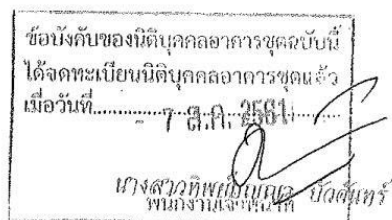 ข้อบังคับของนิติบุคคลอาคารชุดฉบับนี้
ได้จดทะเบียนนิติบุคคลอาคารชุดแล้ว
เมื่อวันที่ - 7 ส.ค. 2561
นางสาว
พนักงานเจ้าหน้าที่